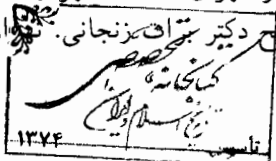 ح دکتر
زنجانی.
کتابخانه تخصصی
تاریخ اسلام و ایران
تأسیس
۱۳۷۴